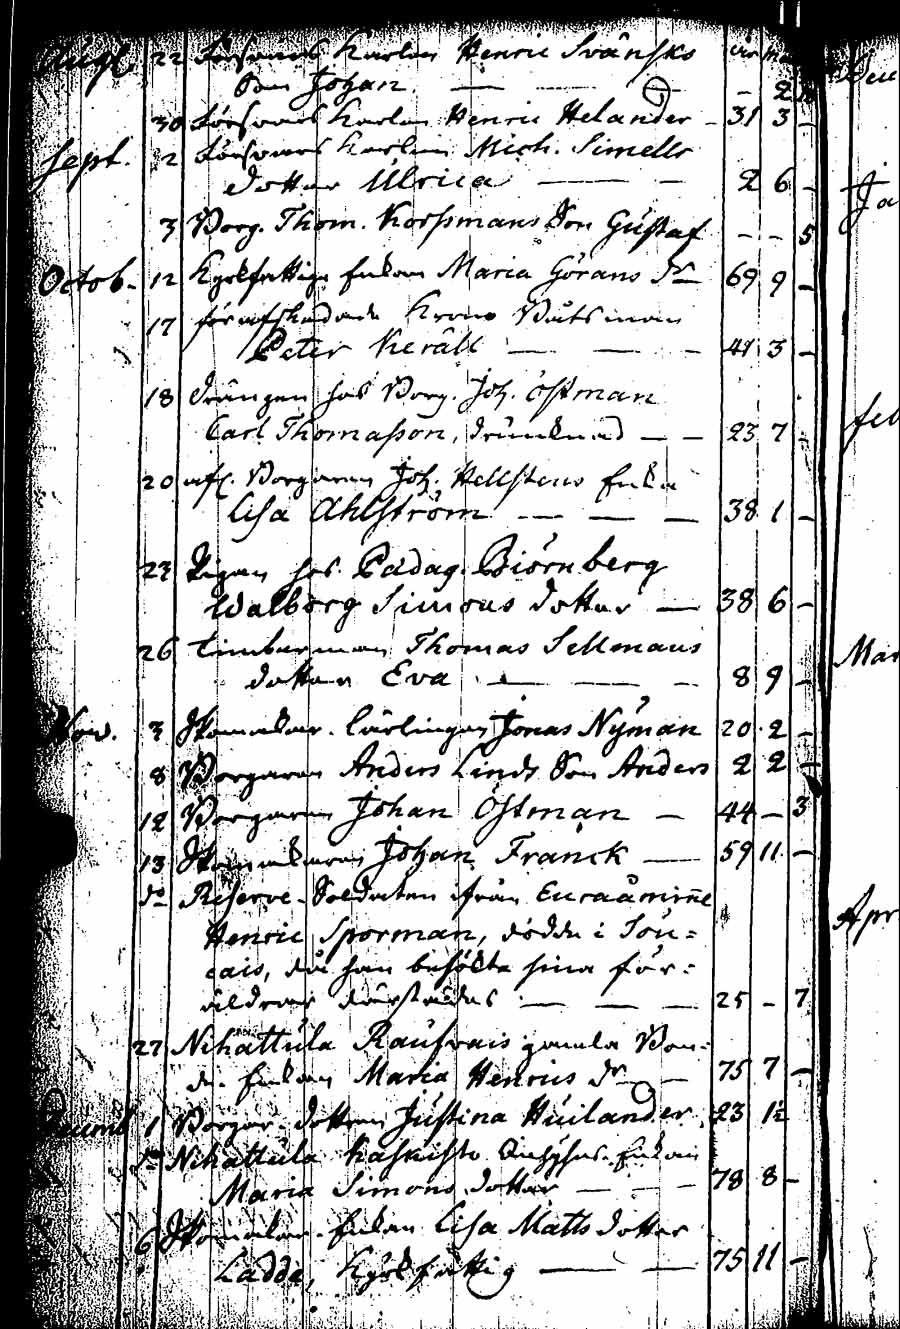 Aug. 22 Försvars Karlen Henric Svänsks
Son Johan. — — — 2
30 Försvars Karlen Henric Helander - 31 3 -
Sept. 2 Försvars Karlen Mich. Simells
dotter Ulrica — — 2 6 -
3 Borg. Thom. Korpmans Son Gustaf - - 5
Octob. 12 Kyrkfattige Enkan Maria Görans dr 69 9 -
17 för afskedade Krono Båtsman
Peter Keräll — — - 41 3 -
18 Drängen hos Borg. Joh. Östman
Carl Thomasson, drunknad — - 23 7 -
20 afl. Borgaren Joh. Hellstens Enka
Lisa Ahlström — — — 38 1 -
23 Pigan hos Pædag. Biörnberg
Walborg Simons dotter — 38 6 -
26 Timberman Thomas Sellmans
dotter Eva — — - 8 9 -
Nov. 3 Skomakar-lärlingen Jonas Nÿman 20 2 -
8 Borgaren Anders Linds Son Anders 2 2 -
12 Borgaren Johan Östman - 44 - 3
13 Skomakaren Johan Franck — 59 11 -
do Reserve-Soldaten ifrån Euraåminne
Henric Sporman, dödde i
då han besökte sina för-
äldrar därstädes — — — 25 - 7
27 Nihattula Raufvais gamla Bon-
de Enkan Maria Henrics dr - 75 7 -
Decemb. 1 Borgar-dottren Justina Huilander 23 1
do Nihattula Enkan
Maria Simons dotter — — - 78 8 -
6 Skomakar-Enkan Lisa Matts dotter
Ladda, Kyrkfattig — — 75 11 -